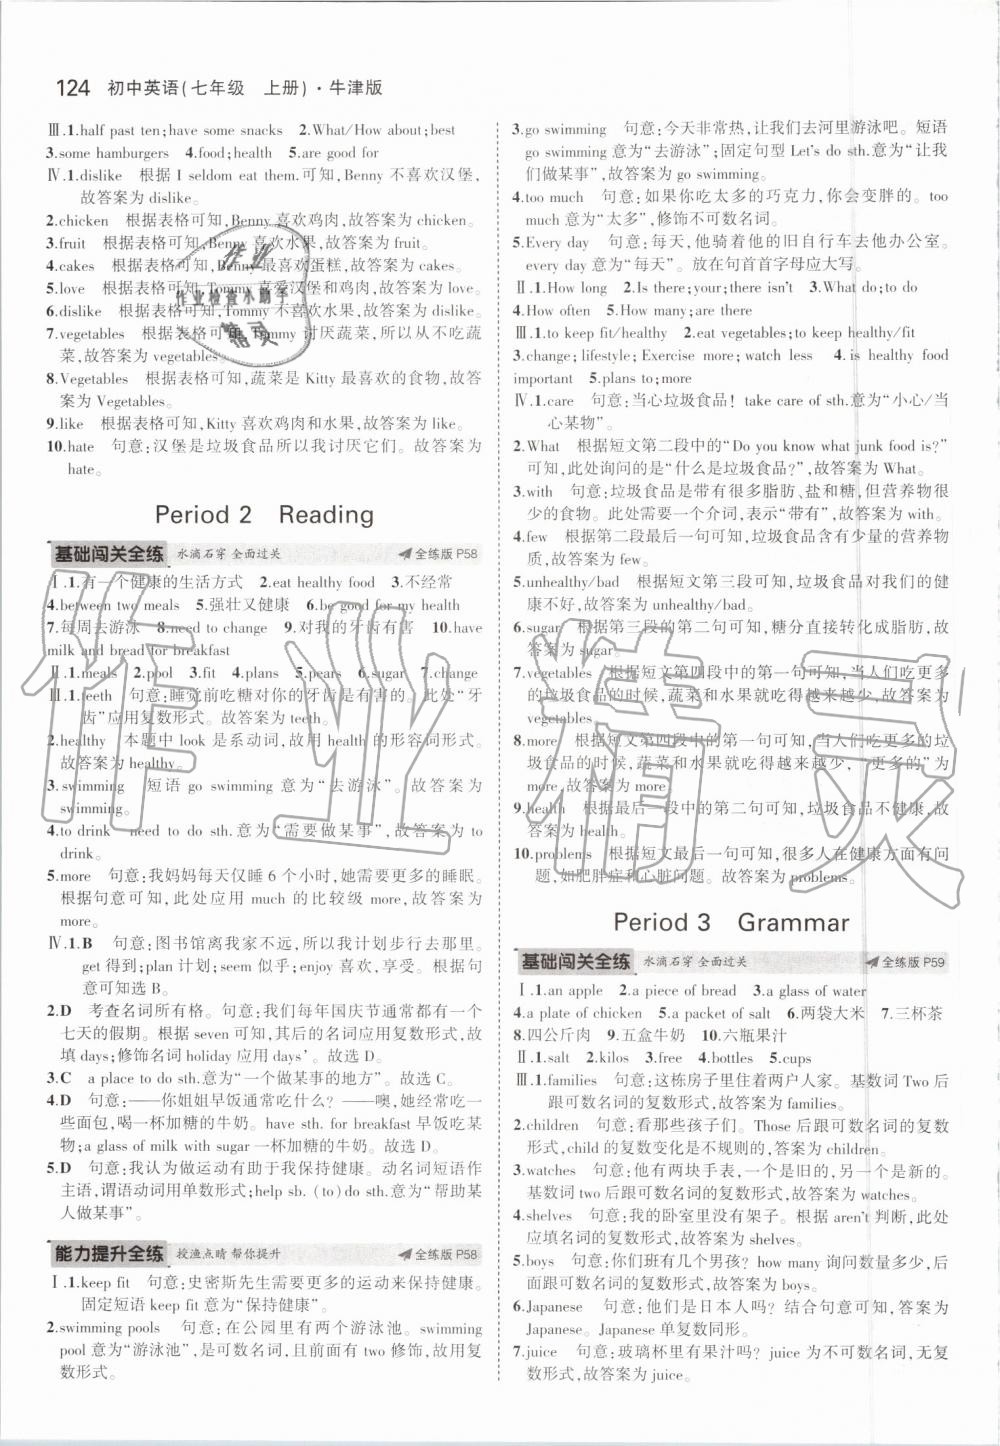 124 初中英语(七年级 上册)·牛津版
Ⅲ.1.half past ten;have some snacks 2.What/How about;best
3.some hamburgers 4.food;health 5.are good for
Ⅳ.1.dislike 根据 I seldom eat them.可知,Benny 不喜欢汉堡,
故答案为 dislike。
2.chicken 根据表格可知,Benny 喜欢鸡肉,故答案为 chicken。
3.fruit 根据表格可知,Benny 喜欢水果,故答案为 fruit。
4.cakes 根据表格可知,Benny 最喜欢蛋糕,故答案为 cakes。
5.love 根据表格可知,Tommy 喜爱汉堡和肉,故答案为 love。
6.dislike 根据表格可知,Tommy 不喜欢水果,故答案为 dislike。
7.vegetables 根据表格可知,Tommy 讨厌蔬菜,所以从不吃蔬
菜,故答案为 vegetables。
8.Vegetables 根据表格可知,蔬菜是 Kitty 最喜欢的食物,故答
案为 Vegetables。
9.like 根据表格可知,Kitty 喜欢鸡肉和水果,故答案为 like。
10.hate 句意:汉堡是垃圾食品所以我讨厌它们。故答案为
hate。
Period 2 Reading
基础闯关全练 水滴石穿 全面过关 全练版 P58
Ⅰ.1.有一个健康的生活方式 2.eat healthy food 3.不经常
4.between two meals 5.强壮又健康 6.be good for my health
7.每周去游泳 8.need to change 9.对我的牙齿有害 10.have
milk and bread for breakfast
Ⅱ.1.meals 2.pool 3.fit 4.plans 5.pears 6.sugar 7.change
Ⅲ.1.teeth 句意:睡觉前吃糖对你的牙齿是有害的。此处“牙
齿”应用复数形式。故答案为 teeth。
2.healthy 本题中 look 是系动词,故用 health 的形容词形式。
故答案为 healthy。
3.swimming 短语 go swimming 意为“去游泳”,故答案为
swimming。
4.to drink need to do sth.意为“需要做某事”,故答案为 to
drink。
5.more 句意:我妈妈每天仅睡 6 个小时,她需要更多的睡眠。
根据句意可知,此处应用 much 的比较级 more,故答案为
more。
Ⅳ.1.B 句意:图书馆离我家不远,所以我计划步行去那里。
get 得到;plan 计划;seem 似乎;enjoy 喜欢,享受。根据句
意可知选 B。
2.D 考查名词所有格。句意:我们每年国庆节通常都有一个
七天的假期。根据 seven 可知,其后的名词应用复数形式,故
填 days;修饰名词 holiday 应用 days’。故选 D。
3.C a place to do sth.意为“一个做某事的地方”。故选 C。
4.D 句意:——你姐姐早饭通常吃什么?——噢,她经常吃面
包,喝一杯加糖的牛奶。have sth. for breakfast 早饭吃某
物;a glass of milk with sugar 一杯加糖的牛奶。故选 D。
5.D 句意:我认为做运动有助于我保持健康。动名词短语作
主语,谓语动词用单数形式;help sb. (to) do sth.意为“帮助某
人做某事”。
能力提升全练 授渔点睛 帮你提升 全练版 P58
Ⅰ.1.keep fit 句意:史密斯先生需要更多的运动来保持健康。
固定短语 keep fit 意为“保持健康”。
2.swimming pools 句意:在公园里有两个游泳池。swimming
pool 意为“游泳池”,是可数名词,且前面有 two 修饰,故用复
数形式。
3.go swimming 句意:今天非常热,让我们去河里游泳吧。短语
go swimming 意为“去游泳”;固定句型 Let's do sth.意为“让我
们做某事”,故答案为 go swimming。
4.too much 句意:如果你吃太多的巧克力,你会变胖的。too
much 意为“太多”,修饰不可数名词。
5.Every day 句意:每天,他骑着他的旧自行车去办公室。
every day 意为“每天”。放在句首首字母应大写。
Ⅱ.1.How long 2.Is there;your;there isn't 3.What do;to do
4.How often 5.How many;are there
Ⅲ.1.to keep fit/healthy 2.eat vegetables;to keep healthy/fit
3.change; lifestyle; Exercise more; watch less 4.is healthy food
important 5.plans to;more
Ⅳ.1.care 句意:当心垃圾食品! take care of sth.意为“小心/当
心某物”。
2.What 根据短文第二段中的“Do you know what junk food is?”
可知,此处询问的是“什么是垃圾食品?”,故答案为 What。
3.with 句意:垃圾食品是带有很多脂肪、盐和糖,但营养物很
少的食物。此处需要一个介词,表示“带有”,故答案为 with。
4.few 根据短文第二段中的最后一句可知,垃圾食品几乎没有营养
物质,故答案为 few。
5.unhealthy/bad 根据短文第三段可知,垃圾食品对我们的健
康不好,故答案为 unhealthy/bad。
6.sugar 根据第三段的第二句可知,糖分直接转化成脂肪,故
答案为 sugar。
7.vegetables 根据短文第四段中的第一句可知,当人们吃更多
的垃圾食品的时候,蔬菜和水果就吃得越来越少,故答案为
vegetables。
8.more 根据短文第四段中的第一句可知,当人们吃更多的垃
圾食品的时候,蔬菜和水果就吃得越来越少,“更多的”为
more,故答案为 more。
9.health 根据最后一段中的第二句可知,垃圾食品不健康,故
答案为 health。
10.problems 根据短文最后一句可知,很多人在健康方面有问
题,如肥胖症和心脏问题。故答案为 problems。
Period 3 Grammar
基础闯关全练 水滴石穿 全面过关 全练版 P59
Ⅰ.1.an apple 2.a piece of bread 3.a glass of water
4.a plate of chicken 5.a packet of salt 6.两袋大米 7.三杯茶
8.四公斤肉 9.五盒牛奶 10.六瓶果汁
Ⅱ.1.salt 2.kilos 3.free 4.bottles 5.cups
Ⅲ.1.families 句意:这栋房子里住着两户人家。基数词 Two 后
跟可数名词的复数形式,故答案为 families。
2.children 句意:看那些孩子们。Those 后跟可数名词的复数
形式,child 的复数变化是不规则的,答案为 children。
3.watches 句意:他有两块手表,一个是旧的,另一个是新的。
基数词 two 后跟可数名词的复数形式,故答案为 watches。
4.shelves 句意:我的卧室里没有架子。根据 aren't 判断,此处
应填可数名词的复数形式,故答案为 shelves。
5.boys 句意:你们班有多少个男孩? how many 询问数量多少,后
面跟可数名词的复数形式,故答案为 boys。
6.Japanese 句意:他们是日本人吗? 结合句意可知,答案为
Japanese。Japanese 单复数同形。
7.juice 句意:玻璃杯里有果汁吗? juice 为不可数名词,无复
数形式,故答案为 juice。
作业
作业检查小助手
精灵
作业精灵